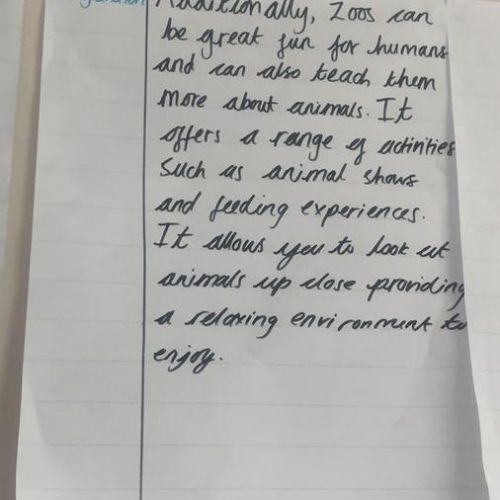 Additionally, Zoos can
be great fun for humans
and can also teach them
more about animals. It
offers a range of activities
such as animal shows
and feeding experiences.
It allows you to look at
animals up close providing
a relaxing environment to
enjoy.